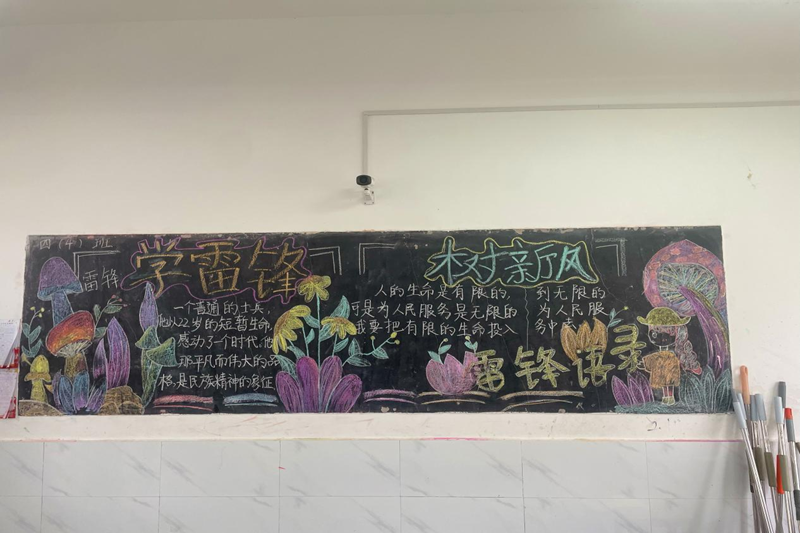 四(4)班
学雷锋
树新风
雷锋
一个普通的士兵,
他以22岁的短暂生命,
感动了一个时代,他
那平凡而伟大的品
格,是民族精神的象征
人的生命是有限的,
可是为人民服务是无限的
我要把有限的生命投入
到无限的
为人民服
务中去
雷锋语录